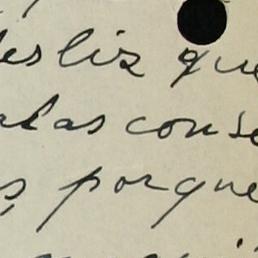 desliz que
malas conse
porque